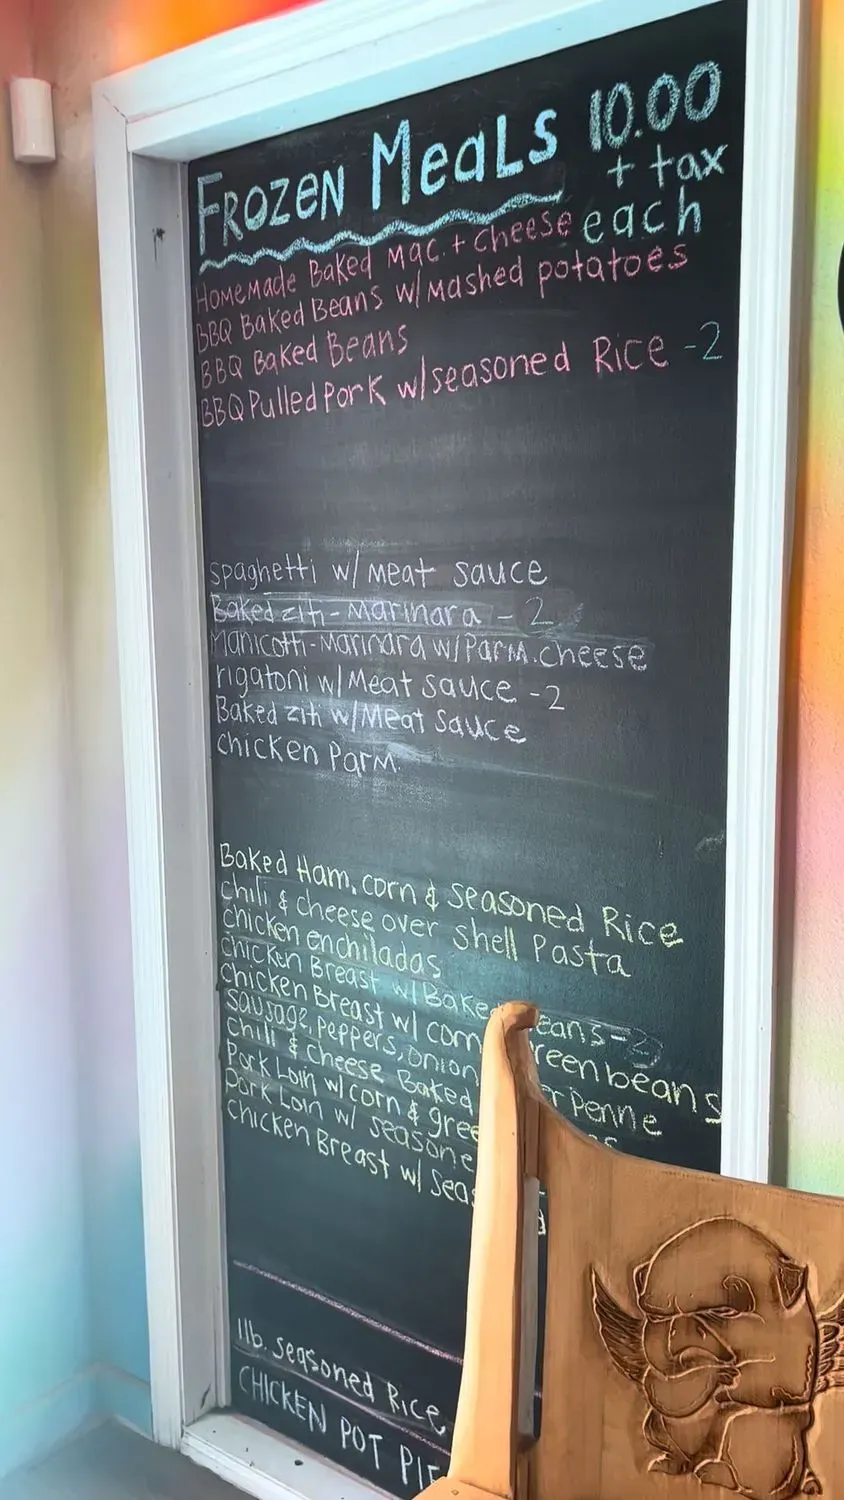 FROZEN MeaLs 10.00
+ tax
each
HOMEMADE BAKED Mac. + Cheese
BBQ BAKED BEANS W/MASHED POTATOES
BBQ BAKED BEANS
BBQ Pulled Pork w/seasoned Rice - 2
spaghetti w/ Meat sauce
Baked ziti - Marinara - 2
Manicotti - Marinara w/Parm. cheese
rigatoni w/ Meat sauce - 2
Baked ziti w/Meat sauce
chicken Parm
Baked Ham, corn & seasoned Rice
chili & cheese over shell Pasta
chicken enchiladas
chicken Breast w/ Bake eans - 2
chicken Breast w/ corn reen beans
sausage, peppers, onion r Penne
chili & cheese Baked
Pork Loin w/ corn & gree
Pork Loin w/ seasone
chicken Breast w/ seas
1lb. seasoned Rice
CHICKEN POT PIE